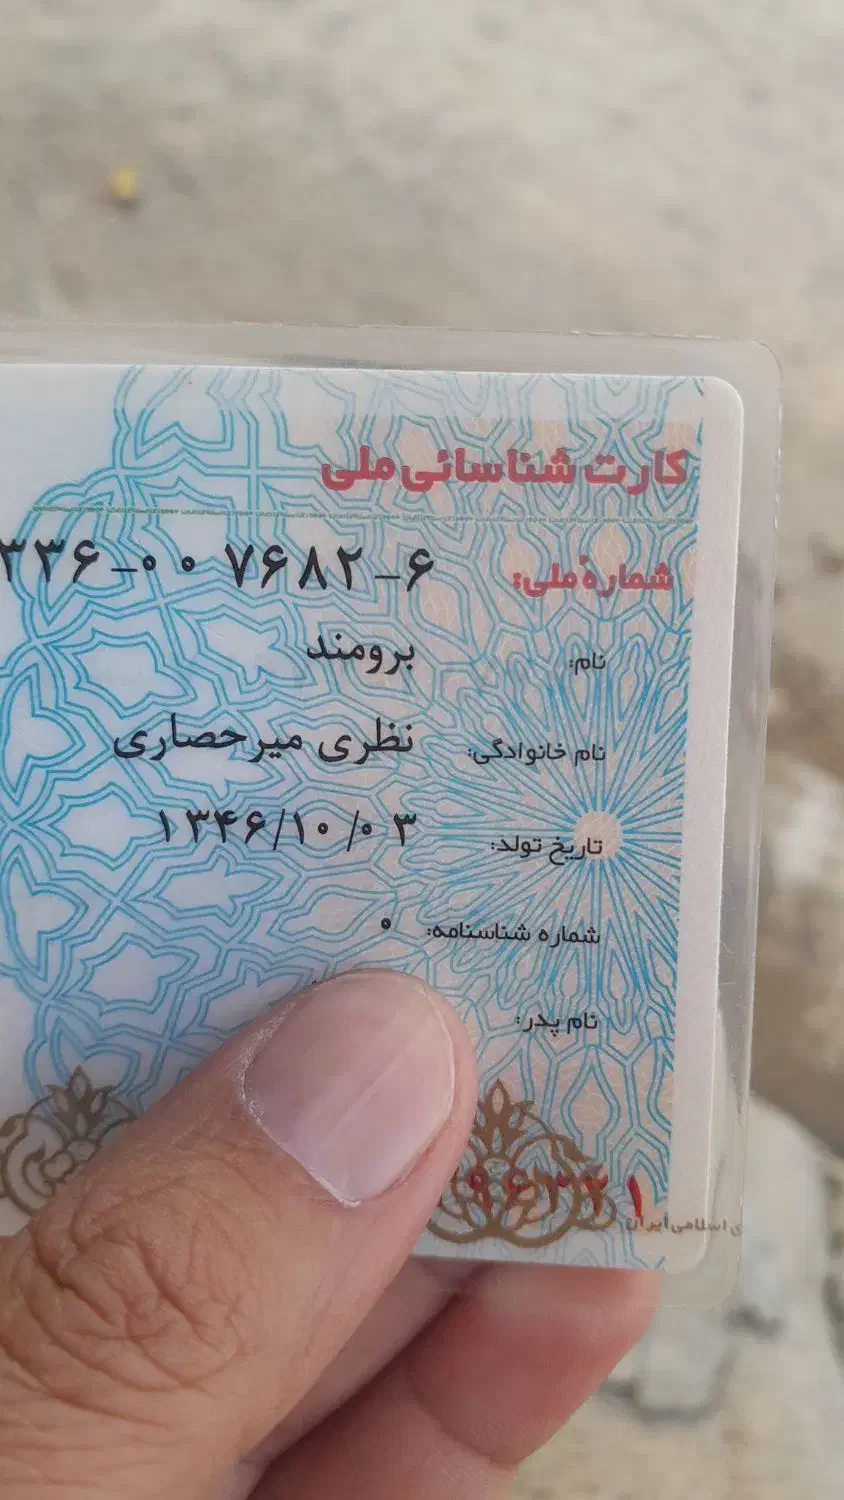 کارت شناسائی ملی
شمارهٔ ملی: ۳۳۶-۰۰۷۶۸۲-۶
نام: برومند
نام خانوادگی: نظری میرحصاری
تاریخ تولد: ۱۳۴۶/۱۰/۰۳
شماره شناسنامه: ۰
نام پدر:
اسلامی ایران